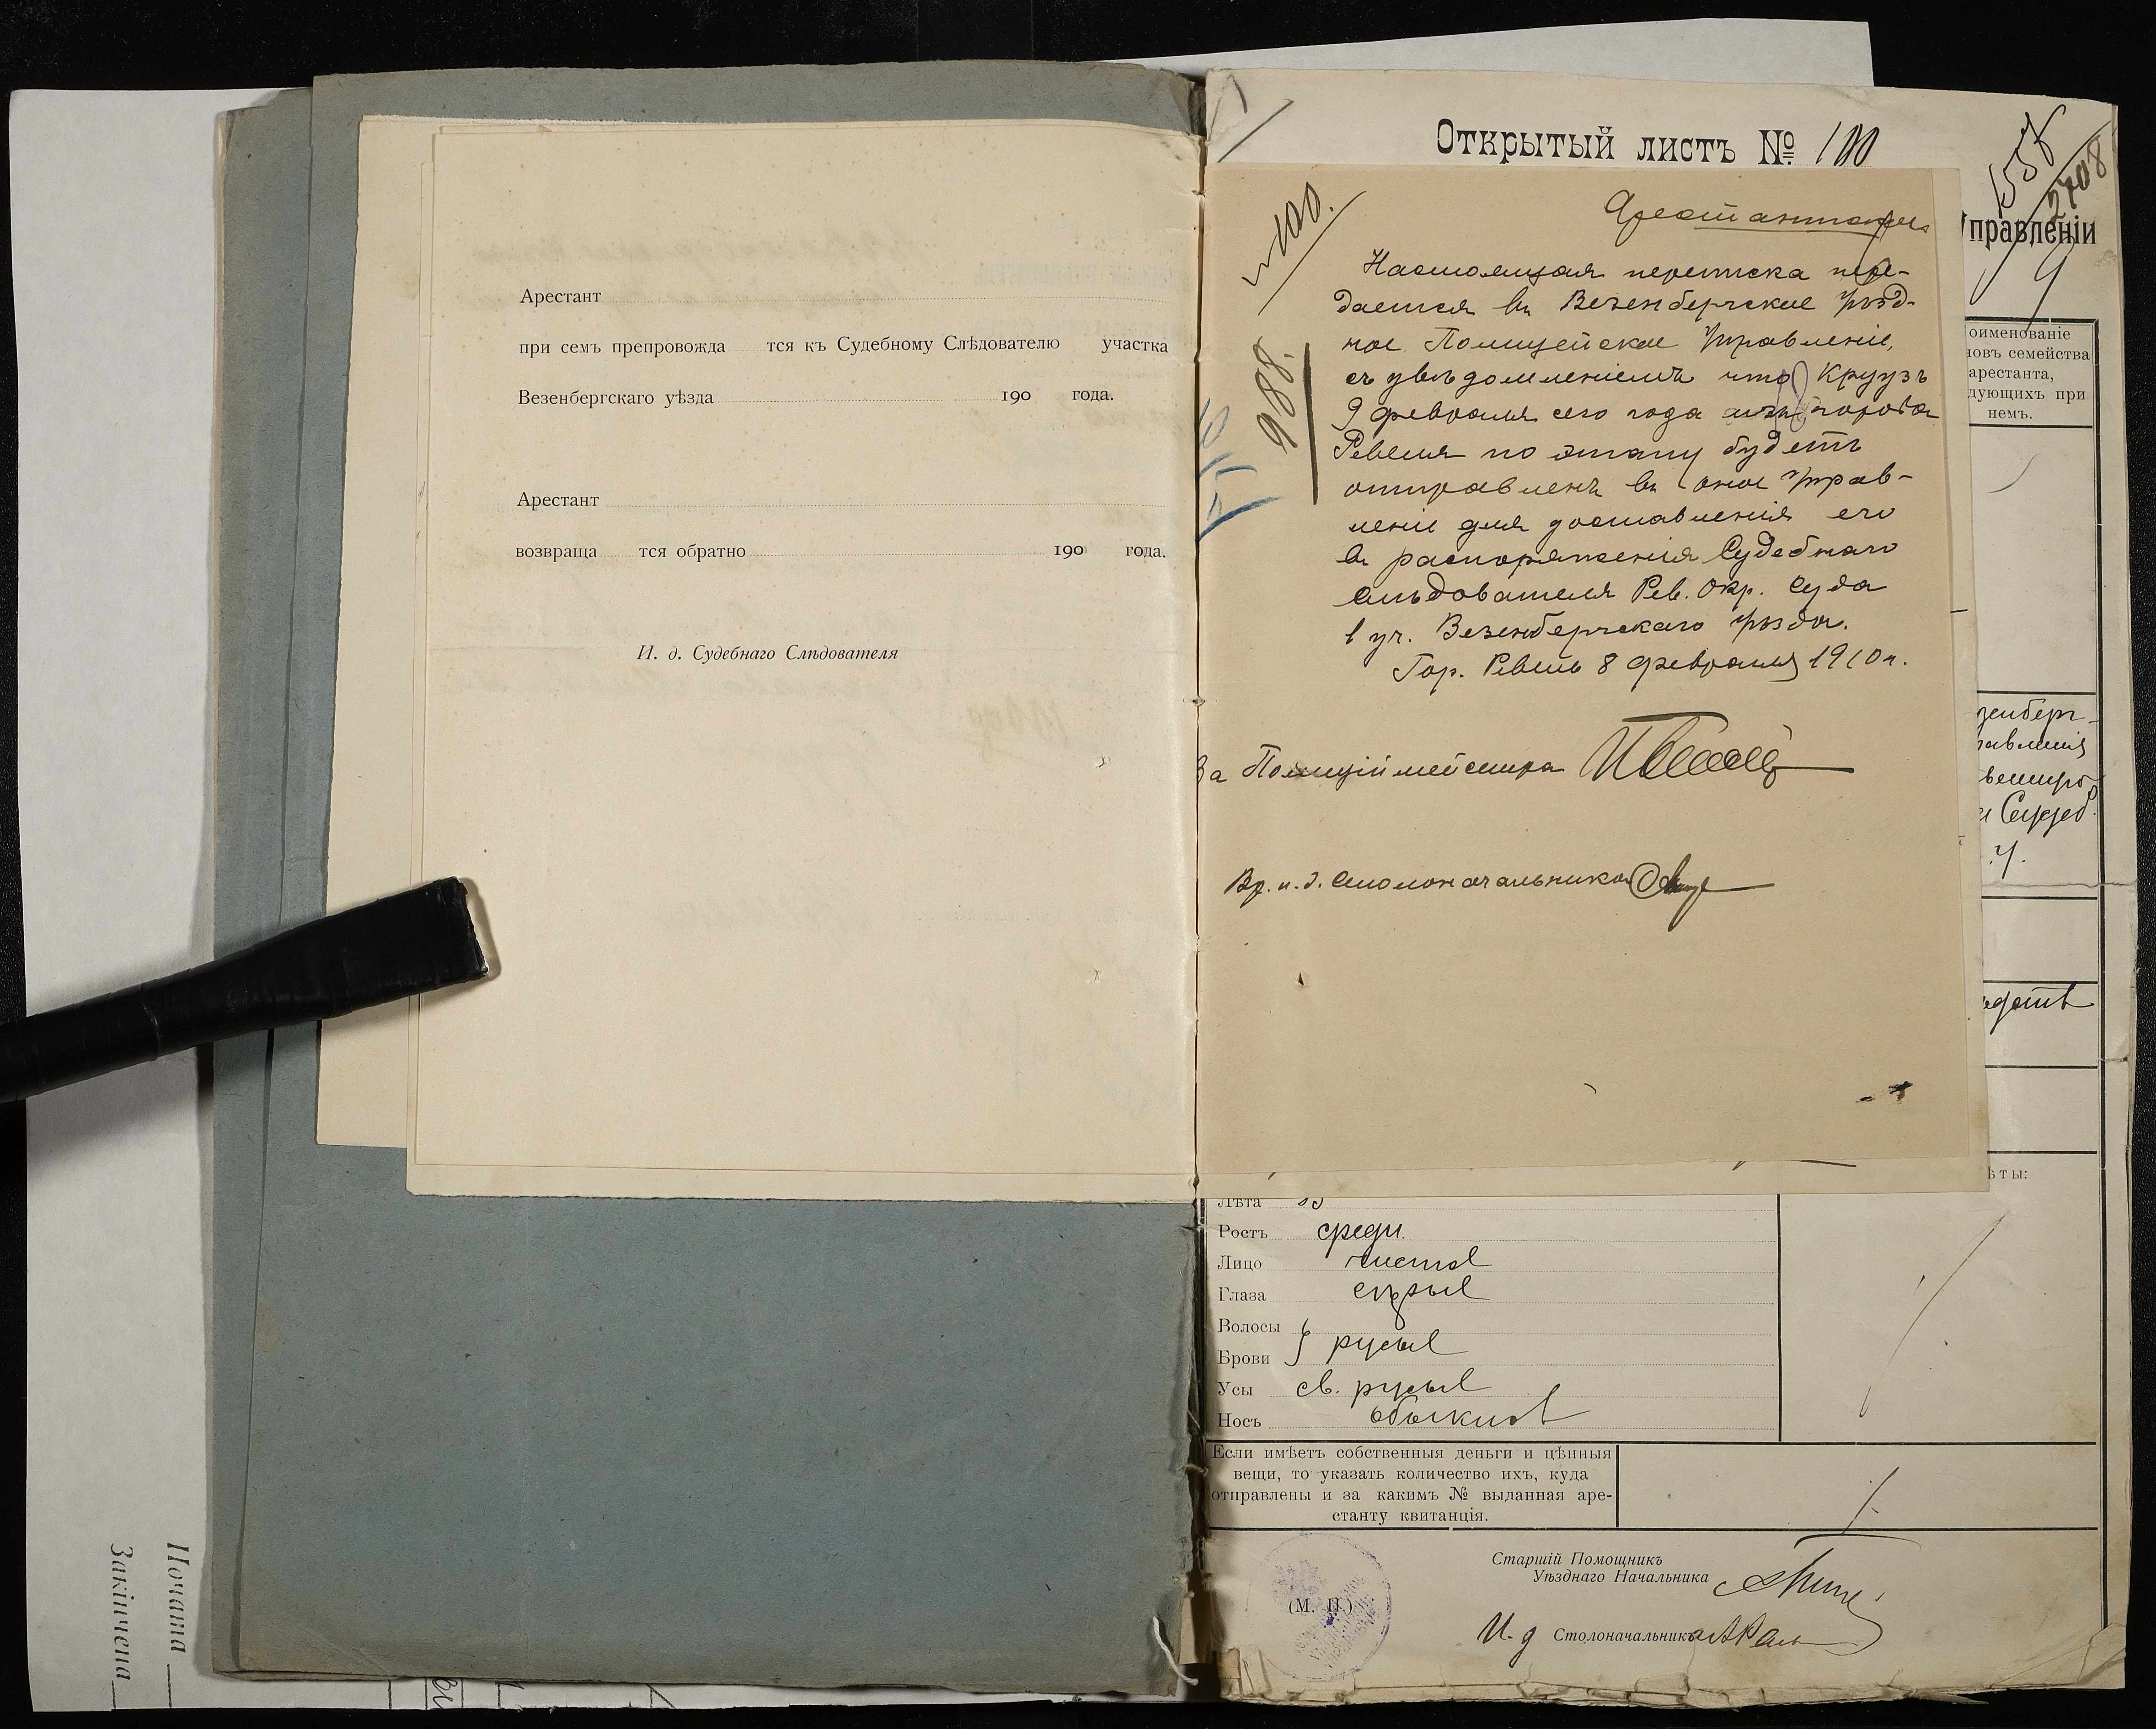 Арестант
при семъ препровожда тся къ Судебному Слѣдователю участка
Везенбергскаго уѣзда 190 года.
Арестант
возвраща тся обратно 190 года.
И. д. Судебнаго Слѣдователя
Открытый листъ № 100
2708
Управленіи
№ 100.
988.
Настоящая переписка пере-
дается въ Везенбергское Уѣзд-
ное Полицейское Управленіе,
съ увѣдомленіемъ что Круузъ
9 февраля сего года изъ города
Ревеля по этапу будетъ
отправленъ въ оное Управ-
леніе для доставленія его
въ распоряженія Судебнаго
Слѣдователя Рев. Окр. Суда
1 уч. Везенбергскаго уѣзда.
Гор. Ревель 8 февраля 1910 г.
За Полиціймейстера
Вр. и. д. Столоначальника
оименованіе
новъ семейства
арестанта,
дующихъ при
немъ.
зенберг-
равленія
Судеб.
ѣты:
Лѣта
Ростъ средн.
Лицо чистое
Глаза сѣрые
Волосы
Брови русые
Усы св. русые
Носъ обыкнов
Если имѣетъ собственныя деньги и цѣнныя
вещи, то указать количество ихъ, куда
отправлены и за какимъ № выданная аре-
станту квитанція.
Старшій Помощникъ
Уѣзднаго Начальника
(М. П.)
И. д Столоначальника
Почата
Закінчена